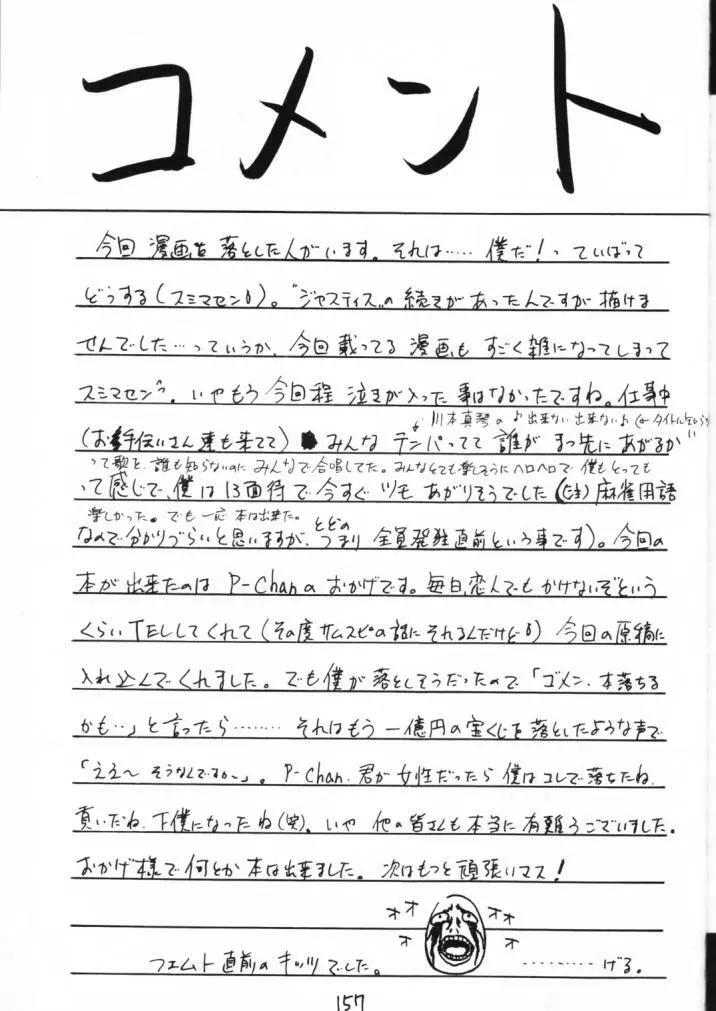 コメント
今回 漫画を 落とした人がいます。それは…… 僕だ！っていばって
どうする(スミマセン)。"ジャスティス"の続きがあったんですが描けま
せんでした…っていうか、今回載ってる漫画も すごく雑になってしまって
スミマセン。いやもう 今回程 泣きが入った事はなかったですね。仕事中
川本真琴の♪出来ない 出来ない♪(←タイトル知らず)
(お手伝いさん達も来てて) みんな テンパってて 誰が まっ先にあがるか
って歌を、誰も知らないのに みんなで合唱してた。みんなとても楽しそうに ヘロヘロで 僕もとっても
って感じで、僕は13面待で今すぐ ツモ あがりそうでした (注)麻雀用語
楽しかった。でも一応 本は出来た。
なので分かりづらいと思いますが、つまり 全員発狂直前という事です)。今回の
とどの
本が出来たのは P-Chanの おかげです。毎日、恋人でも かけないぞという
くらいTELしてくれて(その度サムスピの話にそれるんだけど) 今回の原稿に
入れ込んでくれました。でも僕が 落としそうだったので「ゴメン、本落ちる
かも‥」と言ったら……… それはもう 一億円の宝くじを落としたような声で
「ええ〜 そうなんですか〜」。P-Chan、君が女性だったら 僕はコレで落ちたね、
貢いだね、下僕になったね(笑)。いや 他の皆さんも本当に 有難うございました。
おかげ様で何とか 本は出来ました。次はもっと頑張りマス！
オオ オオ
オ オ
フェムト直前の キッツでした。 ……… げる。
157